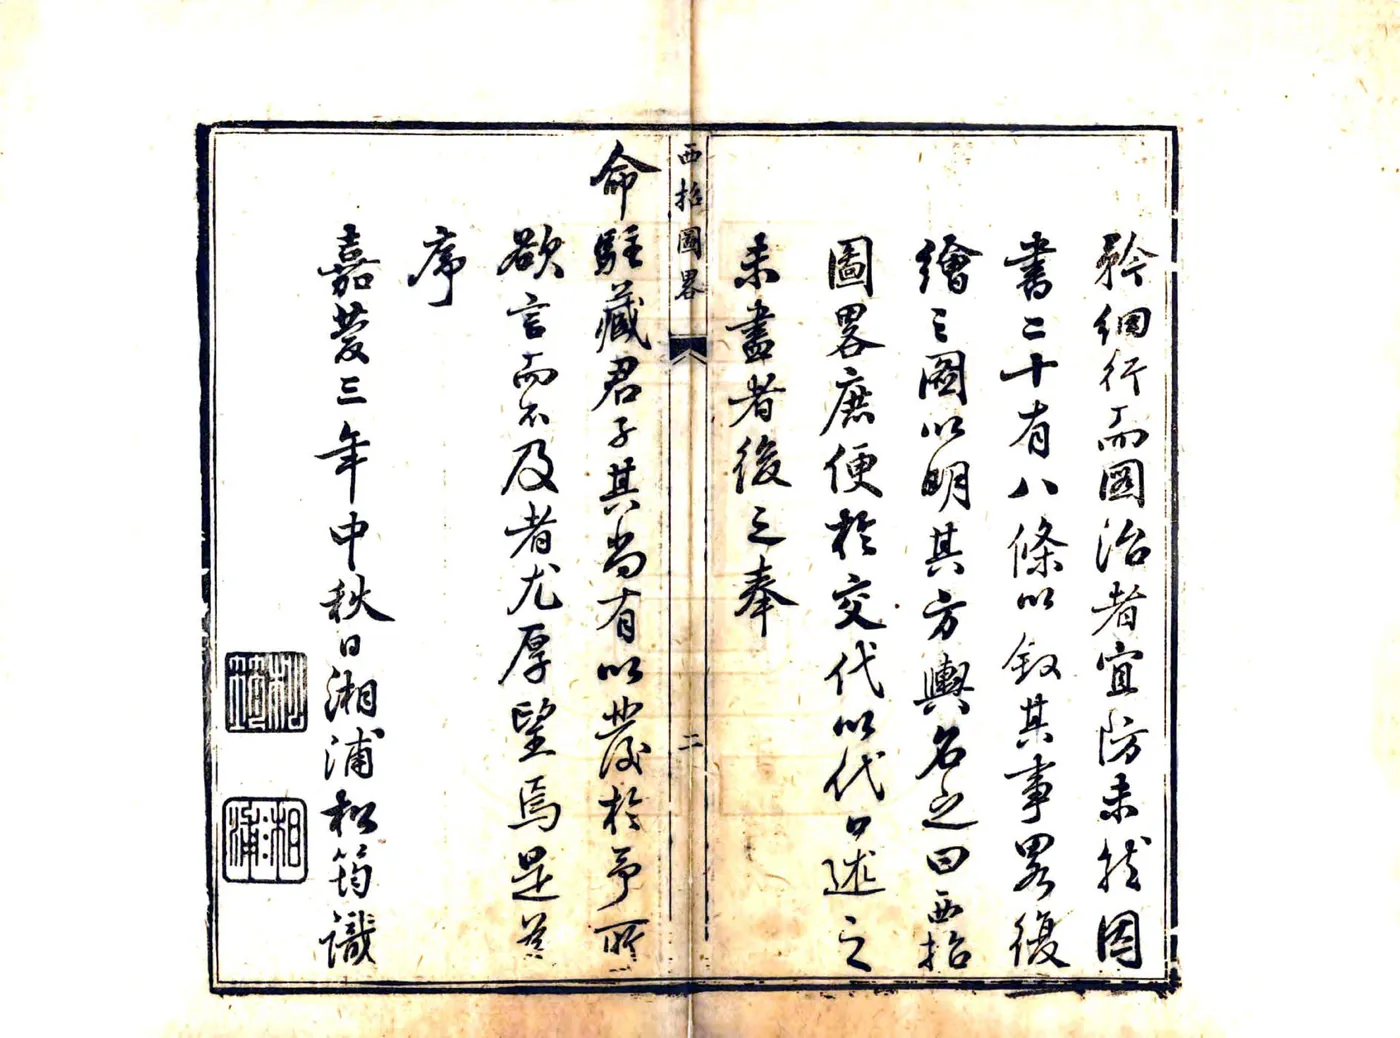 矜細行而圖治者宜防未然因
書二十有八條以叙其事畧復
繪之圖以明其方輿名之曰西招
圖畧庶便於交代以代口述之
未盡者後之奉
西招圖畧
二
命駐藏君子其尚有以發於予所
欲言而不及者尤厚望焉是為
序
嘉慶三年中秋日湘浦松筠識
松筠
湘浦